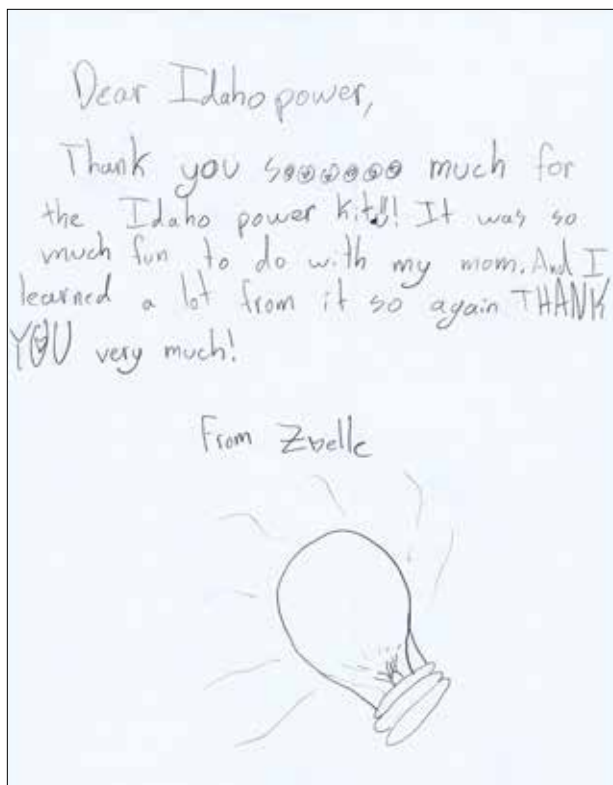 Dear Idaho power,
Thank you sooooooo much for
the Idaho power Kit!!! It was so
much fun to do with my mom. And I
learned a lot from it so again THANK
YOU very much!
From